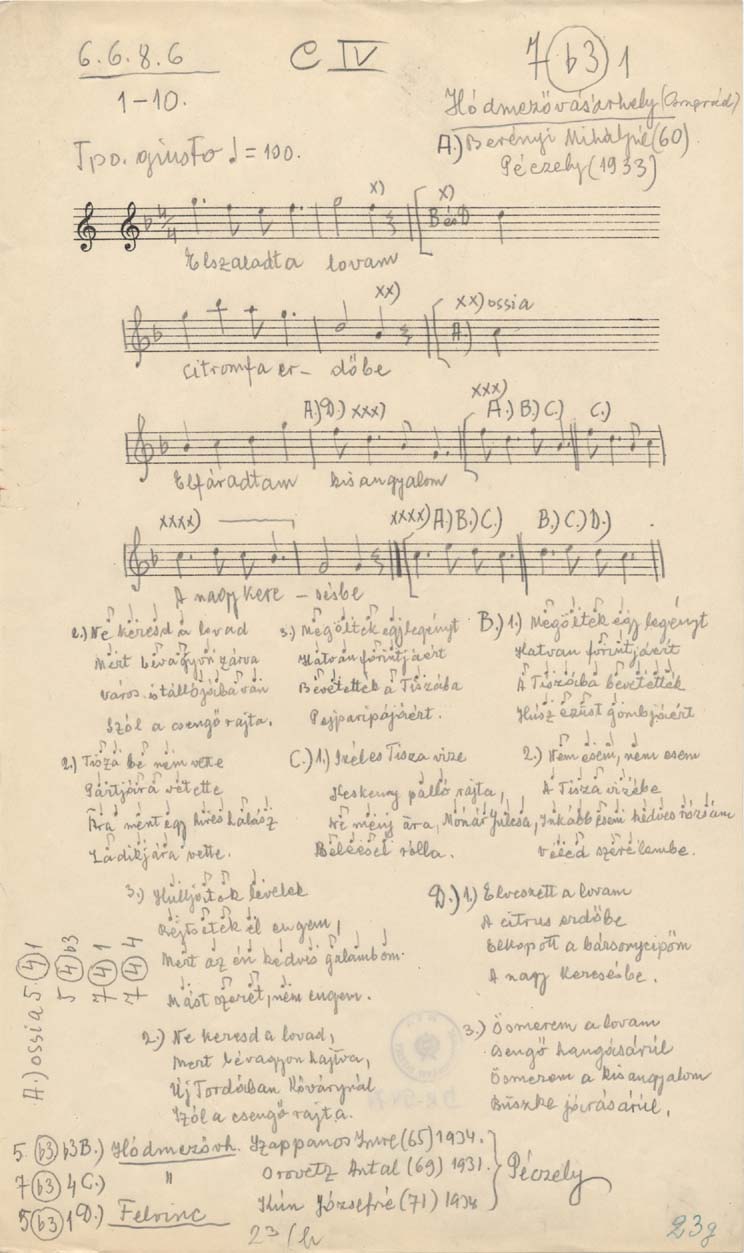 6.6.8.6
C IV
7 (b3) 1
1-10.
Hódmezővásárhely (Csomorád)
Tpo. giusto ♩=100.
A.) Berényi Mihályné (60)
Péczely (1933)
x) x)
B és D
Elszaladt a lovam
xx) xx) ossia
A.)
citromfa er- dőbe
A.) D.) xxx) xxx) A.) B.) C.) C.)
Elfáradtam kis angyalom
xxxx) xxxx) A.) B.) C.) B.) C.) D.)
A nagy kere - sésbe
2.) Ne keresd a lovad
Mert bévagyon zárva
Város istállójába van
Szól a csengő rajta.
3.) Megöltek egy legényt
Hatvan forintjáért
Bévetették a Tiszába
Pejparipájáért.
B.) 1.) Megöltek egy legényt
Hatvan forintjáért
A Tiszába bévetették
Húsz ezüst gombjáért
2.) Tisza bé nem vette
Partjára vetette
Arra ment egy híres halász
Ladikjára vette.
C.) 1.) Széles Tisza vize
Keskeny palló rajta,
Ne menj arra, Mónár Julcsa,
Beléesel rólla.
2.) Nem esem, nem esem
A Tisza vizébe
Inkább esem kedves rózsám
Véled szerelembe.
3.) Hulljatok levelek
Rejtsetek el engem,
Mert az én kedves galambom
Mást szeret, nem engem.
D.) 1.) Elveszett a lovam
A citrus erdőbe
Elkopott a bársonycipőm
A nagy keresésbe.
2.) Ne keresd a lovad,
Mert bévagyon hajtva,
Új Tordában Kovárynál
Szól a csengő rajta.
3.) Ösmerem a lovam
Csengő hangásárúl
Ösmerem a kisangyalom
Büszke járásárúl.
A.) ossia 5 (4) 1
5 (4) b3
7 (4) 1
7 (4) 4
5 (b3) b3 B.) Hódmezővh. Szappanos Imre (65) 1934.
7 (b3) 4 C.) " Orovetz Antal (69) 1931.
5 (b3) 1 D.) Felvinc Kún Józsefné (71) 1934
Péczely
23/h
23g